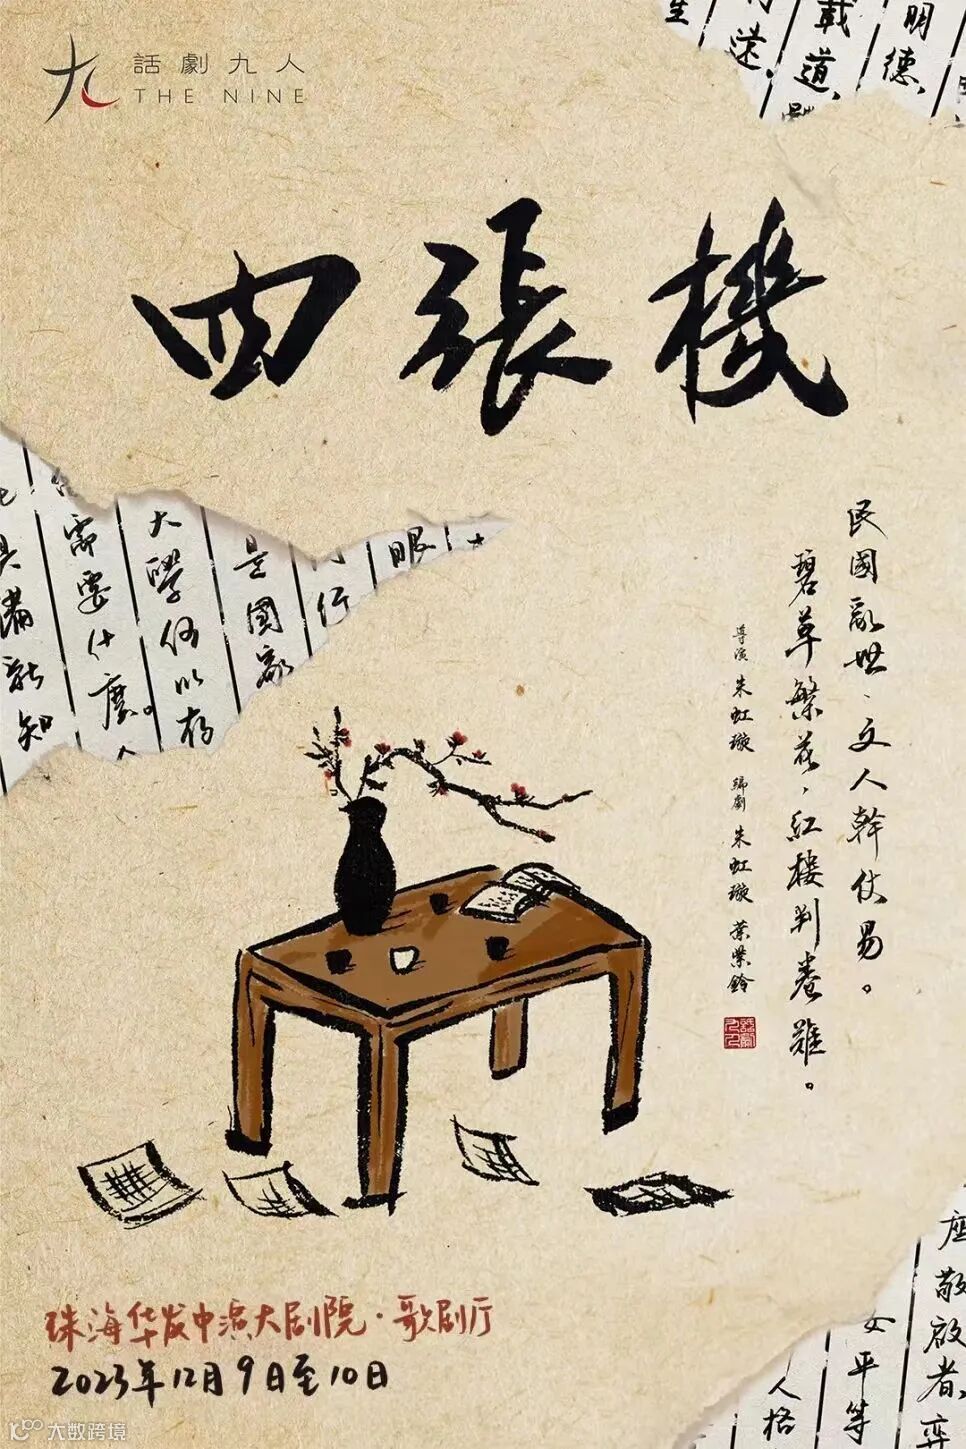 話劇九人
THE NINE
生
遠、
載道、
明德、
四張機
具滿新知
需要什麼。
大學何以存
是國家
行
眼
民國亂世、文人幹仗易。
碧草繁花，紅樓判卷難。
導演 朱虹璇 編劇 朱虹璇 葉紫鈴
話劇九人
珠海华发中演大剧院·歌剧厅
2023年12月9日至10日
座敬啟者，弈
女平等
人格
大数跨境